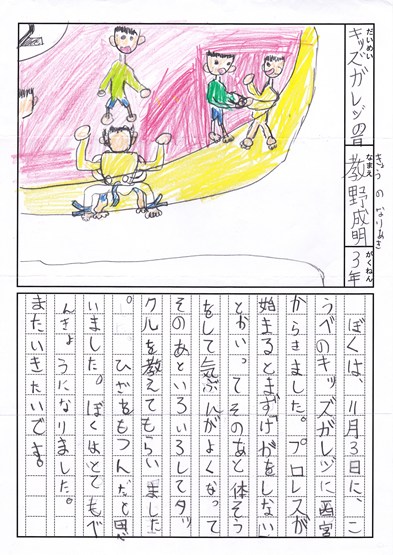 だいめい
キッズガレジの日
きょうの なりあき
なまえ
教野成明
がくねん
3年
ぼくは、11月3日に、こ
うべのキッズガレジに西宮
からきました。プロレスが
始まるとまずけがをしない
とかいってそのあと体そう
をして気ぶんがよくなって
そのあといろいろしてタッ
クルを教えてもらいました
。ひざをもつんだと思
いました。ぼくはとてもべ
んきょうになりました。
またいきたいです。